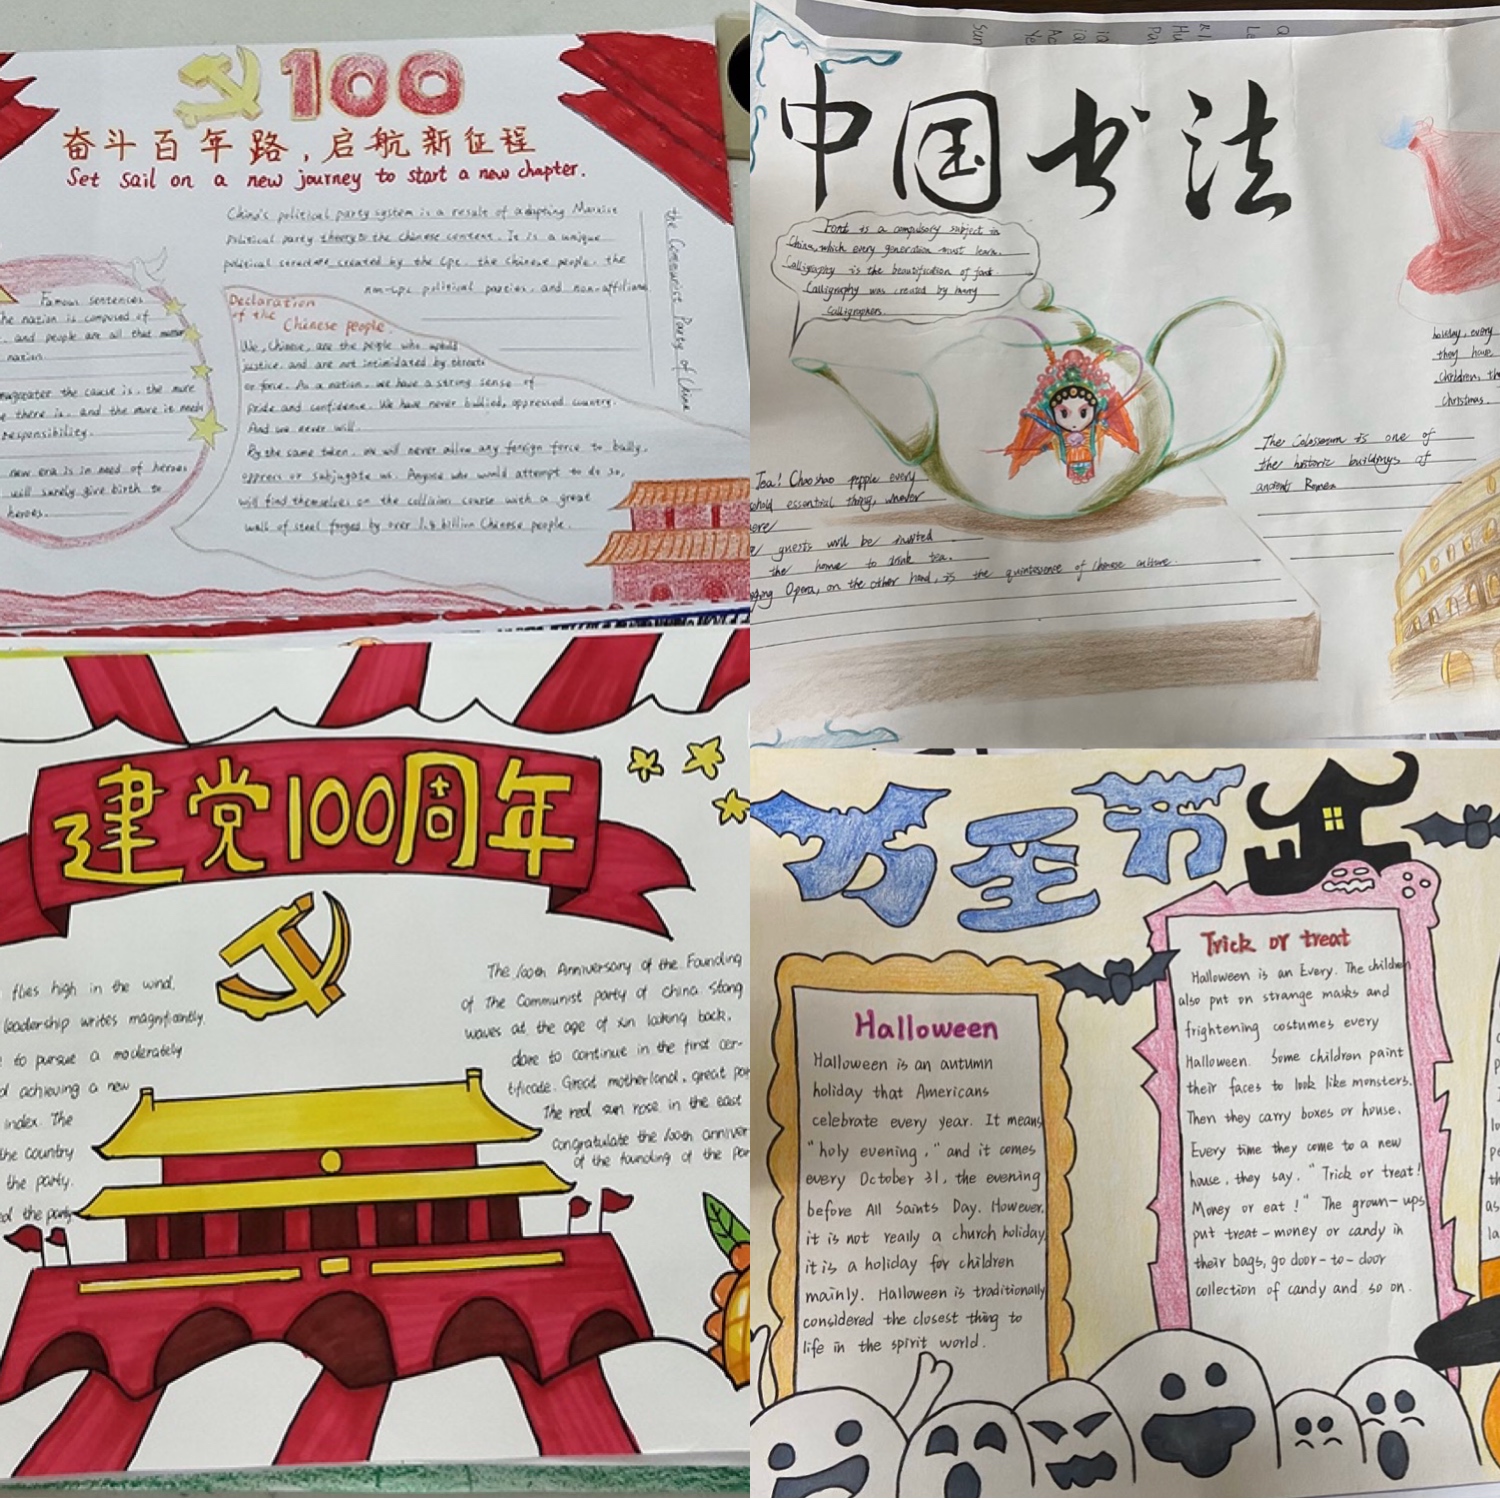 100
奋斗百年路,启航新征程
Set sail on a new journey to start a new chapter.
China's political party system is a result of adapting Marxist
political party theory to the Chinese context. It is a unique
political structure created by the CPC, the Chinese people, the
non-CPC political parties, and non-affiliated
the Communist Party of China
Famous sentences
The nation is composed of
, and people are all that matter
nation
greater the cause is, the more
there is, and the more it needs
responsibility.
new era is in need of heroes
will surely give birth to
heroes.
Declaration
of the
Chinese people.
We, Chinese, are the people who uphold
justice and are not intimidated by threats
or force. As a nation, we have a strong sense of
pride and confidence. We have never bullied, oppressed country.
And we never will.
By the same token, we will never allow any foreign force to bully,
oppress or subjugate us. Anyone who would attempt to do so,
will find themselves on the collision course with a great
wall of steel forged by over 1.4 billion Chinese people.
中国书法
Font is a compulsory subject in
China, which every generation must learn.
Calligraphy is the beautification of font.
Calligraphy was created by many
calligraphers.
holiday, every
they have
children, the
Christmas.
The Colosseum is one of
the historic buildings of
ancient Romea
Tea! Chaoshan people every
essential thing, whenever
guests will be invited
the home to drink tea.
Opera, on the other hand, is the quintessence of Chinese culture.
建党100周年
flies high in the wind,
leadership writes magnificently.
to pursue a moderately
achieving a new
index. The
the country
the party.
the party
The 100th Anniversary of the Founding
of The Communist party of China Stong
waves at the age of xin looking back,
dare to continue in the first cer-
tificate. Great motherland, great par
The red sun rose in the east
congratulate the 100th anniver
of the founding of the par
万圣节
Halloween
Halloween is an autumn
holiday that Americans
celebrate every year. It means
"holy evening," and it comes
every October 31, the evening
before All Saints Day. However,
it is not really a church holiday,
it is a holiday for children
mainly. Halloween is traditionally
considered the closest thing to
life in the spirit world.
Trick or treat
Halloween is an Every. The children
also put on strange masks and
frightening costumes every
Halloween. Some children paint
their faces to look like monsters.
Then they carry boxes or house.
Every time they come to a new
house, they say. "Trick or treat!
Money or eat!" The grown-ups
put treat-money or candy in
their bags, go door-to-door
collection of candy and so on.